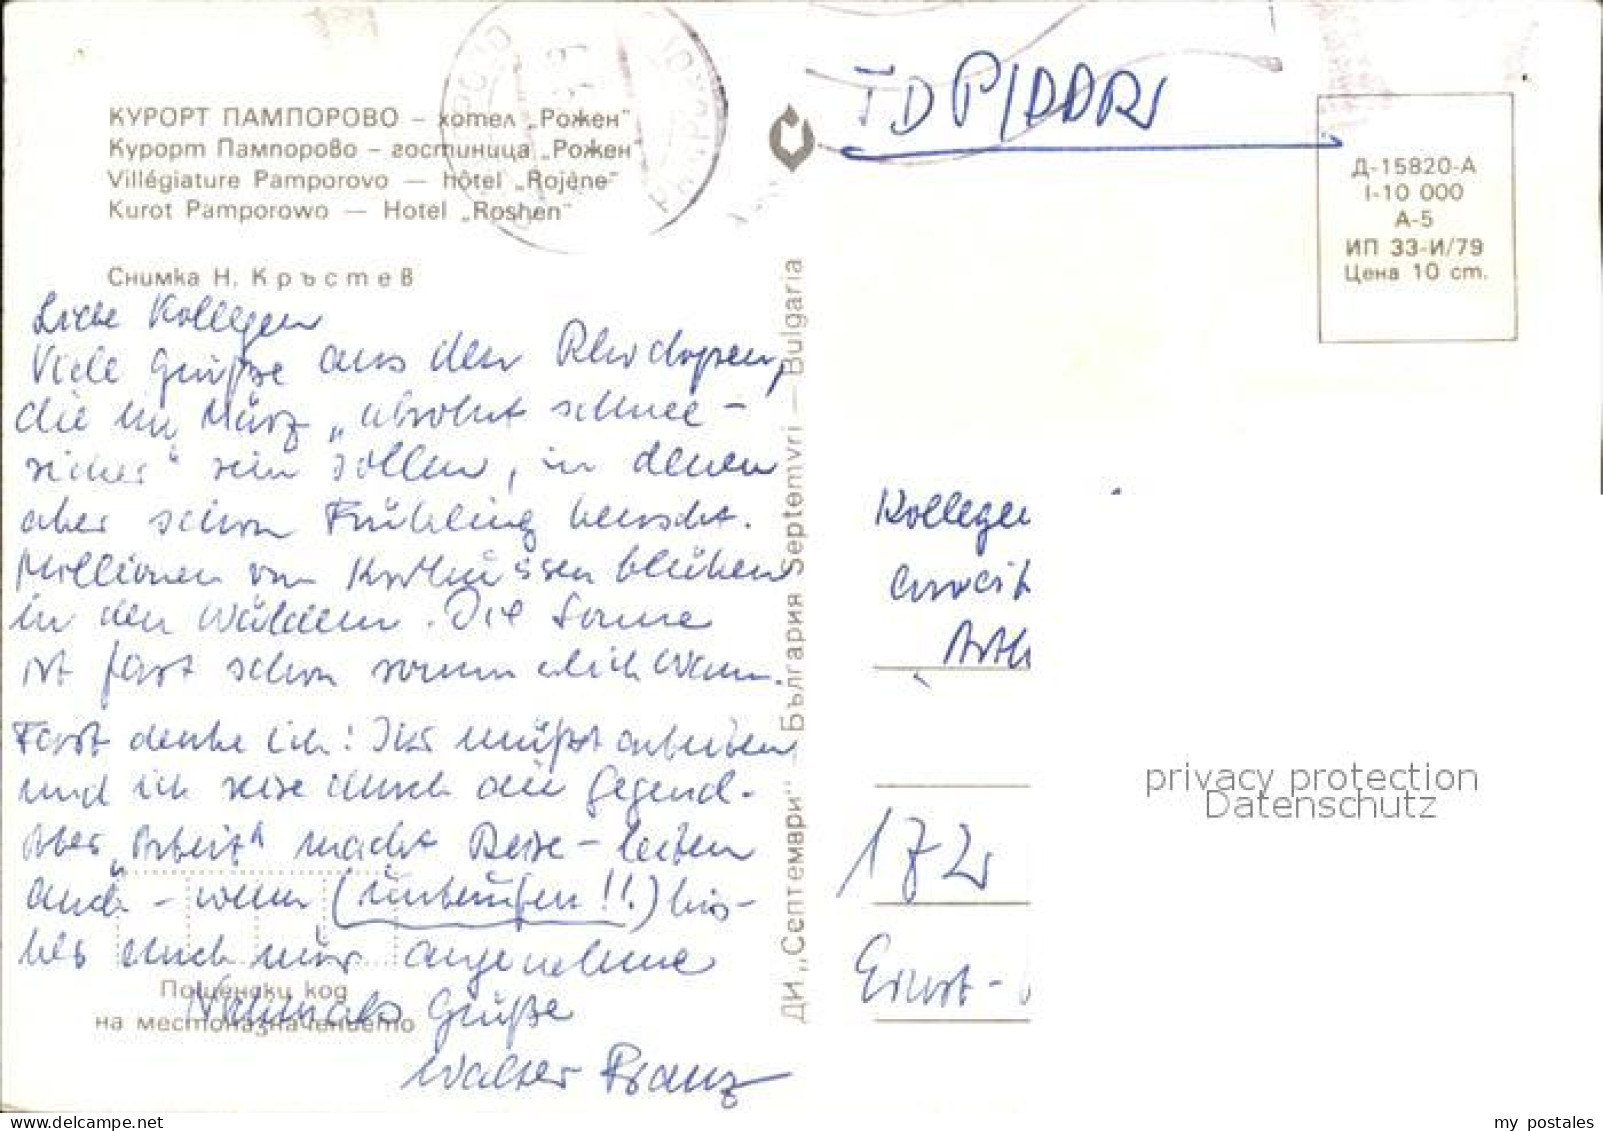 КУРОРТ ПАМПОРОВО – хотел „Рожен"
Курорт Пампорово – гостиница „Рожен"
Villégiature Pamporovo — hôtel „Rojène"
Kurot Pamporowo — Hotel „Roshen"
Снимка Н. Кръстев
Liebe Kollegen
Viele Grüße aus den Rhodopen,
die im März „absolut schnee-
sicher" sein sollen, in denen
aber schon Frühling herrscht.
Millionen von Krokussen blühen
in den Wäldern. Die Sonne
ist fast schon sommerlich warm.
Fast denke ich: Ihr müßt arbeiten
und ich reise durch die Gegend.
Aber „Arbeit" macht Reise-leiten
auch – wenn (unberufen!!.) bis-
her auch nur angenehme
Nochmals Grüße
Walter Franz
Пощенски код
на местоназначението
ДИ „Септември" – България Septemvri — Bulgaria
TDP/DDR
Д-15820-А
I-10 000
А-5
ИП 33-И/79
Цена 10 ст.
Kollegen
Arth
172
Ernst-
privacy protection
Datenschutz
my postales